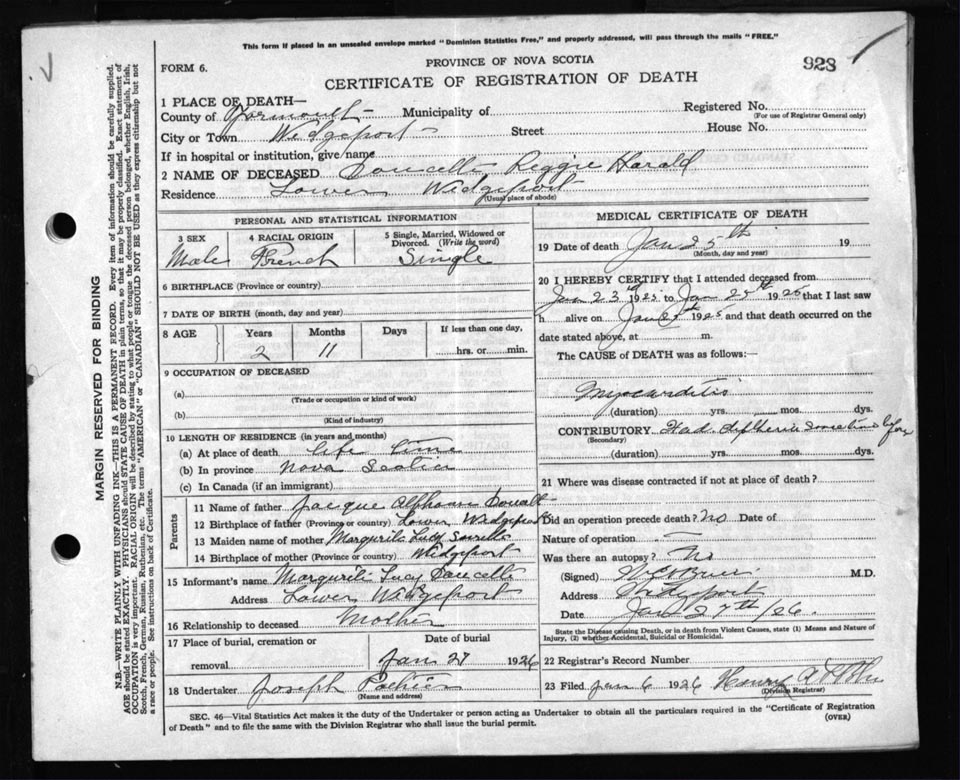 This form if placed in an unsealed envelope marked "Dominion Statistics Free," and properly addressed, will pass through the mails "FREE."
FORM 6.
PROVINCE OF NOVA SCOTIA
928
CERTIFICATE OF REGISTRATION OF DEATH
1 PLACE OF DEATH—
County of Yarmouth Municipality of Registered No.
(For use of Registrar General only)
City or Town Wedgeport Street House No.
If in hospital or institution, give name
2 NAME OF DECEASED Doucette Reggie Harald
Residence Lower Wedgeport
(Usual place of abode)
PERSONAL AND STATISTICAL INFORMATION
3 SEX 4 RACIAL ORIGIN 5 Single, Married, Widowed or Divorced. (Write the word)
Male French Single
6 BIRTHPLACE (Province or country)
7 DATE OF BIRTH (month, day and year)
8 AGE Years Months Days If less than one day,
2 11 hrs. or min.
9 OCCUPATION OF DECEASED
(a)
(Trade or occupation or kind of work)
(b)
(Kind of industry)
10 LENGTH OF RESIDENCE (in years and months)
(a) At place of death life time
(b) In province Nova Scotia
(c) In Canada (if an immigrant)
Parents
11 Name of father Jacque
12 Birthplace of father (Province or country) Lower Wedgeport
13 Maiden name of mother Lucy
14 Birthplace of mother (Province or country) Wedgeport
15 Informant's name Lucy Doucette
Address Lower Wedgeport
16 Relationship to deceased Mother
17 Place of burial, cremation or removal Date of burial
Jan 27 1926
18 Undertaker Joseph
(Name and address)
MEDICAL CERTIFICATE OF DEATH
19 Date of death Jan 25th 19
(Month, day and year)
20 I HEREBY CERTIFY that I attended deceased from
Jan 23rd to Jan 25th that I last saw
h alive on Jan and that death occurred on the
date stated above, at m.
The CAUSE of DEATH was as follows:
Myocarditis
(duration) yrs. mos. dys.
CONTRIBUTORY Had diphtheria sometime before
(Secondary)
(duration) yrs. mos. dys.
21 Where was disease contracted if not at place of death?
Did an operation precede death? No Date of
Nature of operation —
Was there an autopsy? No
(Signed) M.D.
Address Wedgeport
Date Jan 27th/26.
State the Disease causing Death, or in death from Violent Causes, state (1) Means and Nature of
Injury, (2) whether Accidental, Suicidal or Homicidal.
22 Registrar's Record Number
23 Filed 6 1926 Henry
(Division Registrar)
SEC. 46—Vital Statistics Act makes it the duty of the Undertaker or person acting as Undertaker to obtain all the particulars required in the "Certificate of Registration
of Death" and to file the same with the Division Registrar who shall issue the burial permit.
(OVER)
MARGIN RESERVED FOR BINDING
N.B.—WRITE PLAINLY WITH UNFADING INK—THIS IS A PERMANENT RECORD. Every item of information should be carefully supplied.
AGE should be stated EXACTLY. PHYSICIANS should STATE CAUSE OF DEATH in plain terms, so that it may be properly classified. Exact statement of
OCCUPATION is very important. RACIAL ORIGIN will be described by stating to what people or tongue the deceased person belonged, whether English, Irish,
Scotch, French, German, Russian, Ruthenian, etc. The terms "AMERICAN" or "CANADIAN" SHOULD NOT BE USED as they express citizenship but not
a race or people. See instructions on back of Certificate.